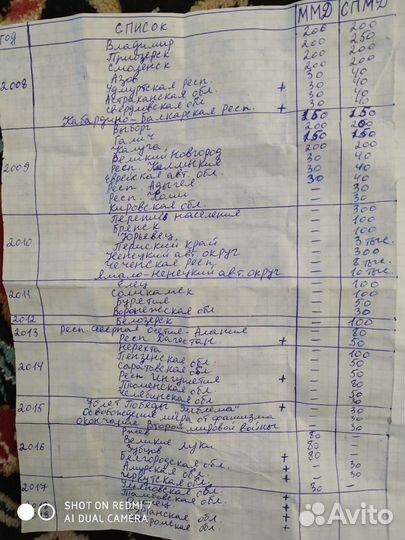 год СПИСОК ММД СПМД
2008 Владимир 200 200
Приозерск 200 250
Смоленск 200 200
Азов 200 200
Удмуртская респ. 30 40
Астраханская обл. 30 40
Свердловская обл. + 30 40
Кабардино-Балкарская респ. + 30 40
2009 Выборг 150 150
Галич 200 200
Калуга 150 150
Великий Новгород 200 200
Респ. Калмыкия 30 40
Еврейская авт. обл. 30 40
Респ. Адыгея 30 40
Респ. Коми — 30
Кировская обл. — 30
2010 Перепись населения — 300
Брянск — 100
Юрьевец — 100
Пермский край — 3 тыс.
Ненецкий авт. округ — 300
Чеченская респ. — 8 тыс.
Ямало-Ненецкий авт. округ — 10 тыс.
2011 Елец — 100
Соликамск — 100
Бурятия — 50
Воронежская обл — 30
2012 Белозерск — 100
2013 Респ. Северная Осетия-Алания — 80
Респ. Дагестан + — 50
2014 Нерехта — 100
Пензенская обл. — 50
Саратовская обл. — 50
Респ. Ингушетия + — 80
Тюменская обл. — 50
Челябинская обл. — 50
2015 70 лет Победы "Эмблема" — 30
Освобождение мира от фашизма — 30
Окончание Второй мировой войны — 30
2016 Ржев 80 —
Великие Луки 80 —
Зубцов 80 —
Белгородская обл. + — 30
Амурская обл. + — 30
Иркутская обл. + — 30
2017 Ульяновская обл. + 30 —
Тамбовская обл. +
Олонец +
обл. +
обл. +
SHOT ON REDMI 7
AI DUAL CAMERA
Avito